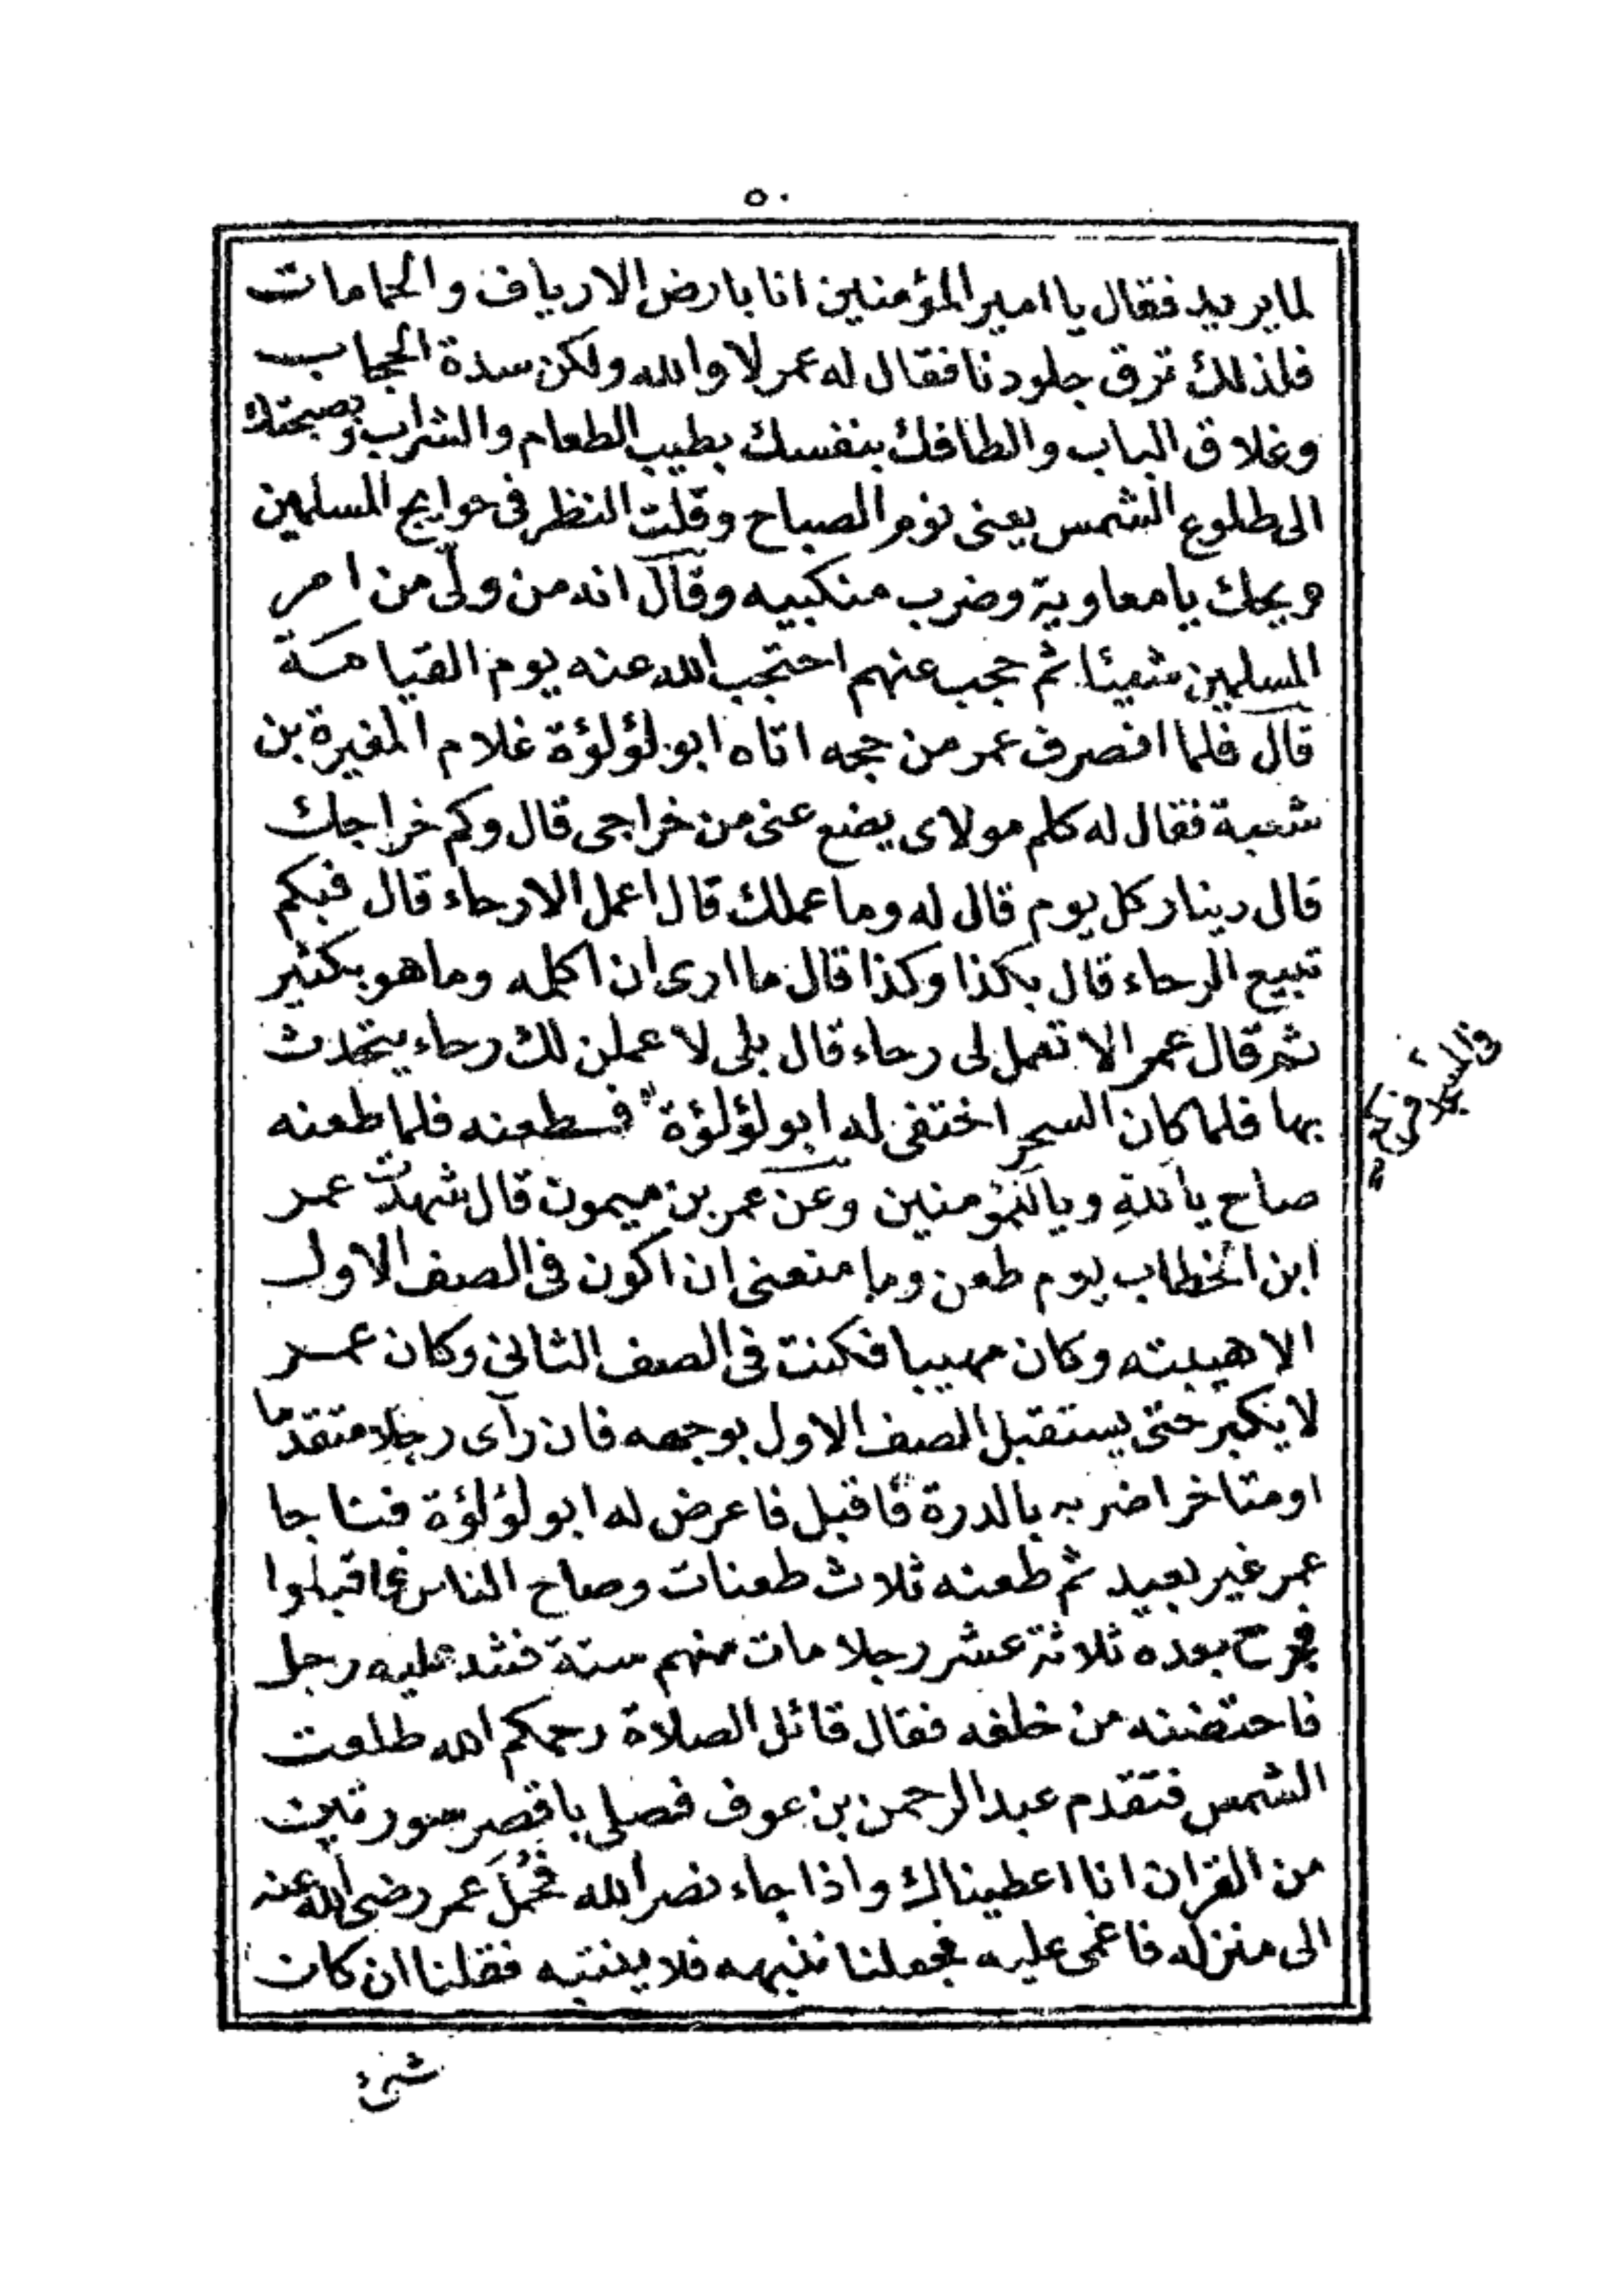 ٥٠
لما يريد فقال يا امير المؤمنين انا بارض الارياف والحمامات
فلذلك ترق جلودنا فقال له عمر لا والله ولكن سدة الحجاب
وغلاق الباب والطافك بنفسك بطيب الطعام والشراب وصبحتك
الى طلوع الشمس يعنى نوم الصباح وقلت النظر فى حوايج المسلمين
ويحك يا معاوية وضرب منكبيه وقال انه من ولّى من امر
المسلمين شيئا ثم حجب عنهم احتجب الله عنه يوم القيامة
قال فلما انصرف عمر من حجه اتاه ابو لؤلؤة غلام المغيرة بن
شعبة فقال له كلم مولاى يضع عنى من خراجى قال وكم خراجك
قال دينار كل يوم قال له وما عملك قال اعمل الارحاء قال فبكم
تبيع الرحاء قال بكذا وكذا قال ما ارى ان اكمله وما هو بكثير
ثم قال عمر الا تعمل لى رحاء قال بلى لا عملن لك رحاء يتحدث
بها فلما كان السحر اختفى له ابو لؤلؤة فطعنه فلما طعنه
فى المسجد
صاح يا لله ويا للمؤمنين وعن عمر بن ميمون قال شهدت عمر
ابن الخطاب يوم طعن وما منعنى ان اكون فى الصف الاول
الا هيبته وكان مهيبا فكنت فى الصف الثانى وكان عمر
لا يكبر حتى يستقبل الصف الاول بوجهه فان رآى رجلا متقدما
او متاخرا ضربه بالدرة فاقبل فاعرض له ابو لؤلؤة فناجا
عمر غير بعيد ثم طعنه ثلاث طعنات وصاح الناس فاقبلوا
فجرح بعده ثلاثة عشر رجلا مات منهم ستة فشد عليه رجل
فاحتضنه من خلفه فقال قائل الصلاة رحمكم الله طلعت
الشمس فتقدم عبد الرحمن بن عوف فصلى باقصر سورتين
من القران انا اعطيناك واذا جاء نصر الله فحُمِلَ عمر رضى الله عنه
الى منزله فاغمى عليه فجعلنا ننبهه فلا ينتبه فقلنا ان كان
شئ